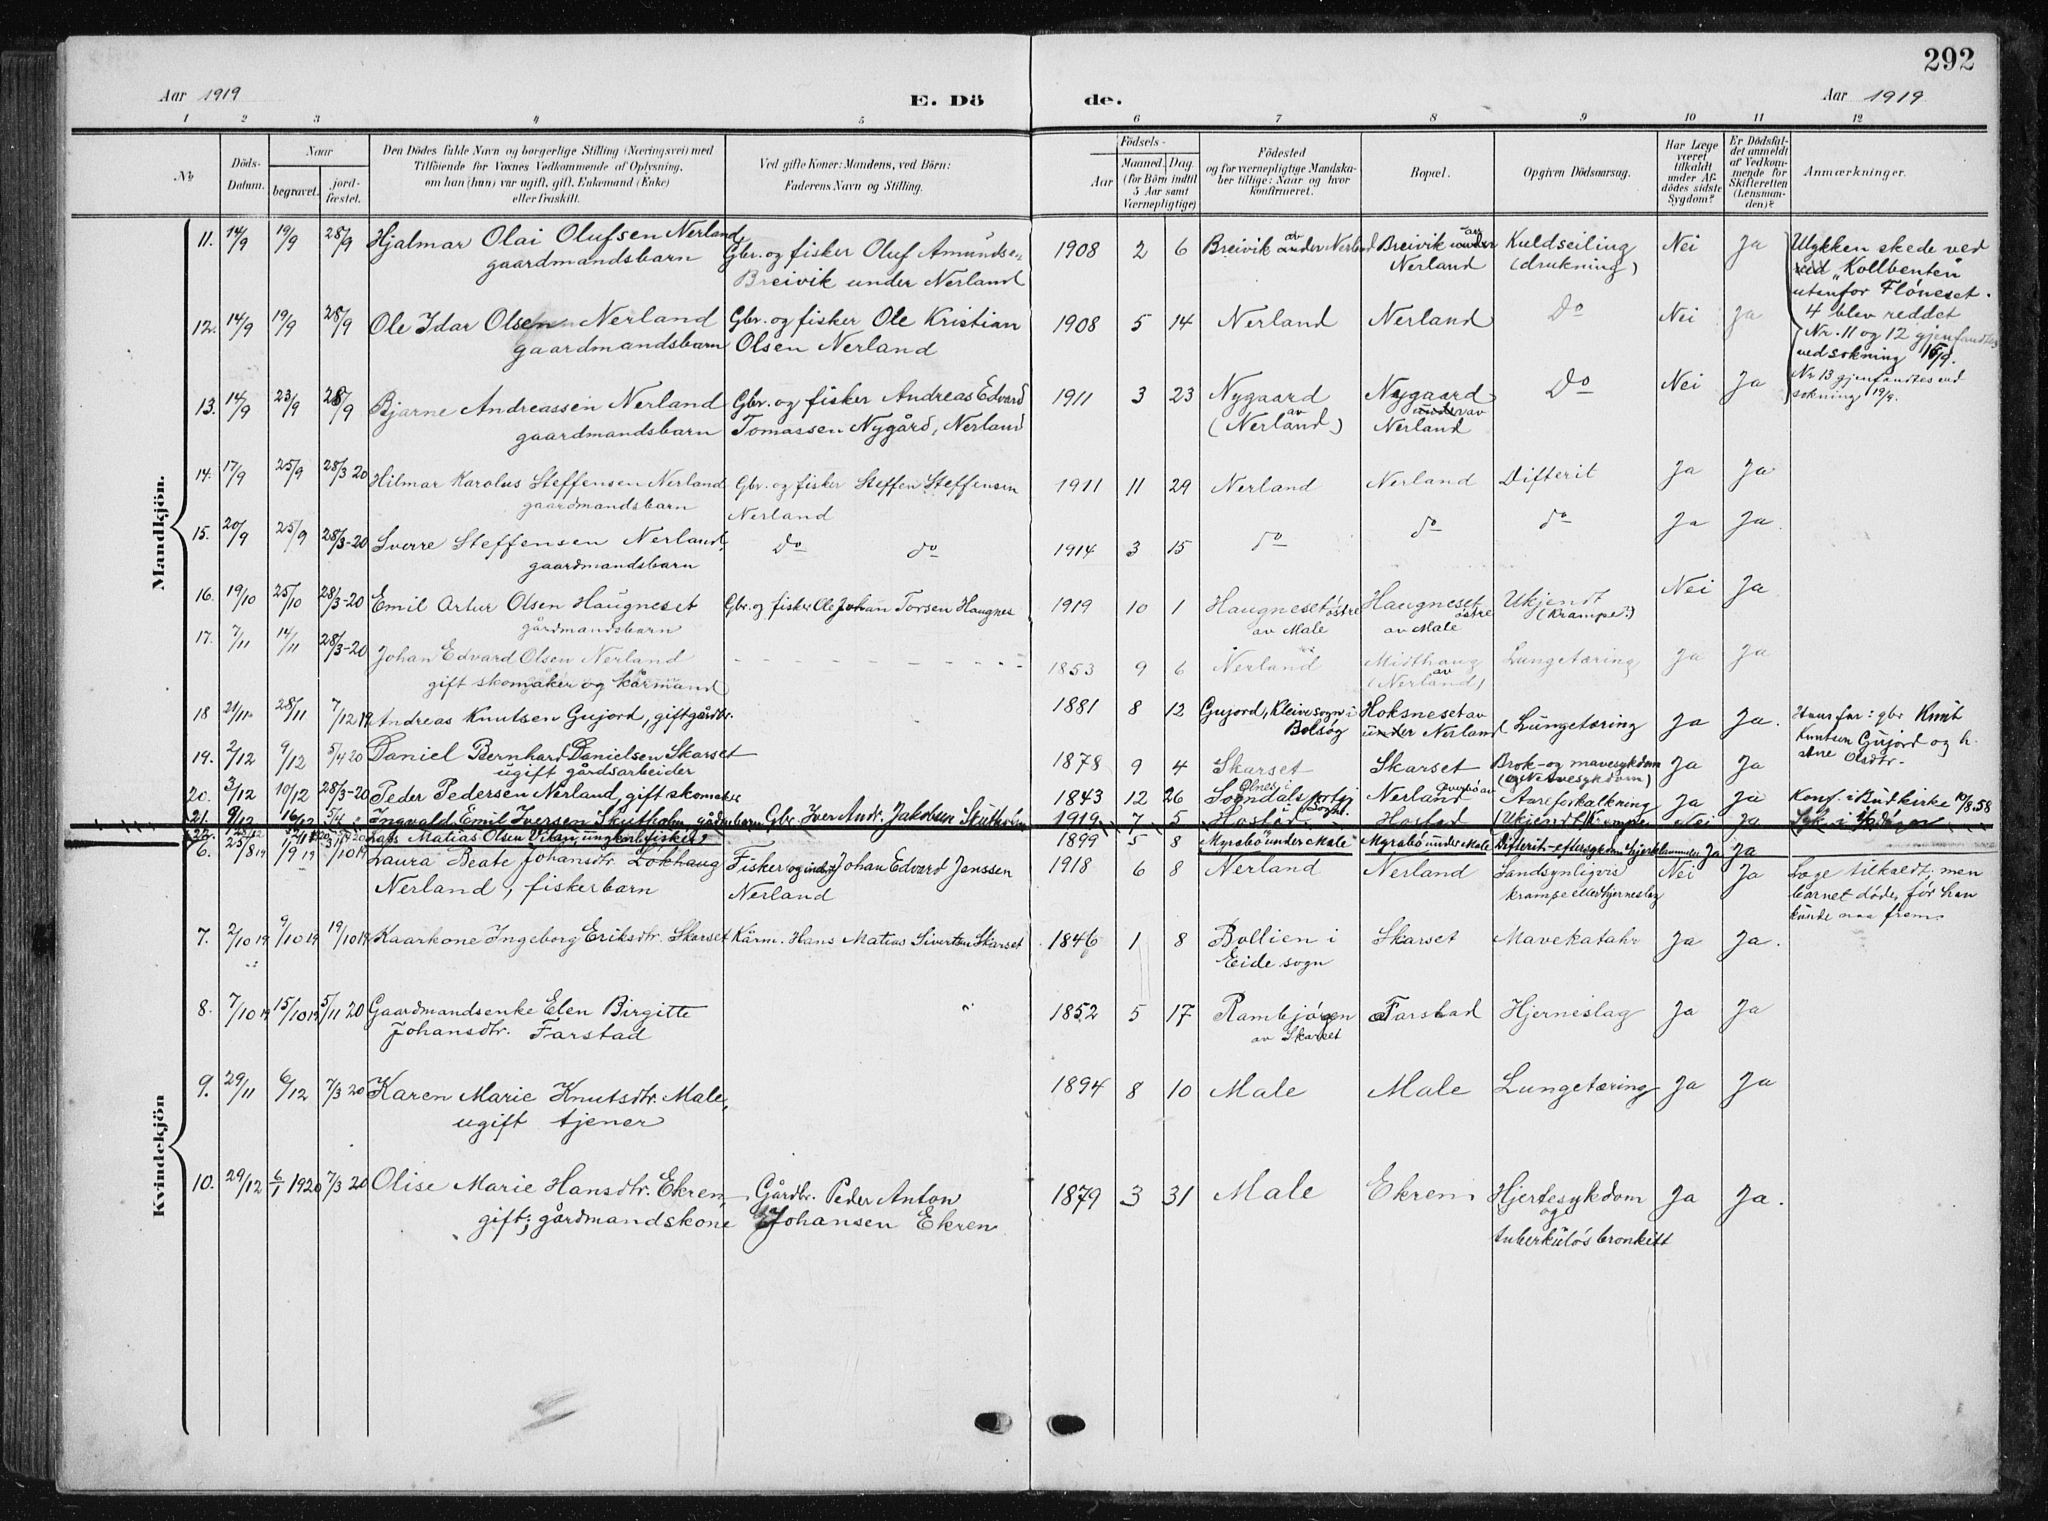 292
Aar 1919
E. Dö
de.
Aar 1919
1 2 3 4 5 6 7 8 9 10 11 12
No.
Döds-Datum.
Naar
begravet.
jord-fæstet.
Den Dödes fulde Navn og borgerlige Stilling (Næringsvei) med
Tilföiende for Voxnes Vedkommende af Oplysning,
om han (hun) var ugift, gift, Enkemand (Enke)
eller fraskilt.
Ved gifte Koner: Mandens, ved Börn:
Faderens Navn og Stilling.
Födsels-
Aar
Maaned. Dag.
(for Börn indtil
5 Aar samt
Værnepligtige)
Födested
og for værnepligtige Mandska-
ber tillige: Naar og hvor
konfirmeret.
Bopæl.
Opgiven Dödsaarsag.
Har Læge
været
tilkaldt
under Af-
dödes sidste
Sygdom?
Er Dödsfal-
det anmeldt
af Vedkom-
mende for
Skifteretten
(Lensman-
den)?
Anmærkninger.
Mandkjön.
11. 14/9 19/9 28/9 Hjalmar Olai Olufsen Nerland, Gbr. og fisker Oluf Amundsen 1908 2 6 Breivik av under Nerland Breivik av under Kuldseiling Nei Ja Ulykken skede ved
gaardmandsbarn Breivik under Nerland Nerland (drukning) ved "Kollbenten"
utenfor Flöneset.
12. 14/9 19/9 28/9 Ole Idar Olsen Nerland Gbr. og fisker Ole Kristian 1908 5 14 Nerland Nerland Do Nei Ja 4 blev reddet
gaardmandsbarn Olsen Nerland Nr. 11 og 12 gjenfandtes
ved sokning 15/9.
13. 14/9 23/9 28/9 Bjarne Andreassen Nerland Gbr. og fisker Andreas Edvard 1911 3 23 Nygaard Nygaard Do Nei Ja Nr 13 gjenfandtes ved
gaardmandsbarn Tomassen Nygård, Nerland av (Nerland) under av Nerland sokning 19/9.
14. 17/9 25/9 28/3 20 Hilmar Karolus Steffensen Nerland Gbr. og fisker Steffen Steffensen 1911 11 29 Nerland Nerland Difterit Ja Ja
gaardmandsbarn Nerland
15. 20/9 25/9 28/3-20 Sverre Steffensen Nerland, Do do 1914 3 15 do do do Ja Ja
gaardmandsbarn
16. 19/10 25/10 28/3-20 Emil Artur Olsen Haugneset Gbr. og fisker Ole Johan Torsen Haugnes 1919 10 1 Haugneset östre Haugneset östre Ukjendt Nei Ja
gårdmandsbarn av Male av Male (Krampe?)
17. 7/11 14/11 28/3-20 Johan Edvard Olsen Nerland 1853 9 6 Nerland Midthaug Lungetæring Ja Ja
gift skomaker og kårmand av (Nerland)
18 21/11 28/11 7/12 19 Andreas Knutsen Gujord, gift gårdbr. 1881 8 12 Gujord, Kleive sogn i Hoksneset av Lungetæring Ja Ja. Hans far: gbr Knut
Bolsøy under Nerland Knutsen Gujord og h.
19. 2/12 9/12 5/4 20 Daniel Bernhard Danielsen Skarset 1878 9 4 Skarset Skarset Brok- og mavesykdom Ja Ja Olsdtr.
ugift gårdsarbeider (og Nervesykdom)
20. 3/12 10/12 28/3-20 Peder Pedersen Nerland, gift skomaker 1843 12 26 Sogndals Nerland Aareforkalkning Ja Ja Konf. i Bud kirke 10/8.58
21. 9/12 16/12 5/4 Ingvald Emil Iversen Skutholm, gårdmbarn Gbr. Iver Andr. Jakobsen Skutholm 1919 7 5 Hostad Hostad (Ukjendt) Krampe Nei Ja
22. Lars Matias Olsen Vikan, ungkarl fisker 1899 5 8 Myrabö under Male Myrabö under Male Difterit- Ja Ja
Kvindekjön
6. 25/8 19 1/9 19 5/10 19 Laura Beate Johansdtr. Lökhaug Fisker Johan Edvard Jenssen 1918 6 8 Nerland Nerland Sandsynligvis Nei Ja Læge tilkaldt, men
Nerland, fiskerbarn Nerland krampe eller hjerneslag barnet döde, för han
kunde naa frem.
7. 2/10 19 9/10 19 19/10 19 Kaarkone Ingeborg Eriksdtr. Skarset Kårm. Hans Matias Sivertsen Skarset 1846 1 8 Bollien i Skarset Mavekatahr Ja Ja.
Eide sogn
8. 7/10 19 15/10 19 5/11 20 Gaardmandsenke Elen Birgitte 1852 5 17 Rambjörgen Farstad Hjerneslag Ja Ja
Johansdtr. Farstad av Skarset
9. 29/11 6/12 7/3 20 Karen Marie Knutsdtr. Male, 1894 8 10 Male Male Lungetæring Ja Ja
ugift tjener
10. 29/12 6/1 1920 7/3 20 Olise Marie Hansdtr. Ekren, Gårdbr. Peder Anton 1879 3 31 Male Ekren Hjertesykdom Ja Ja.
gift, gårdmandskone Johansen Ekren og
tuberkulös bronkitt